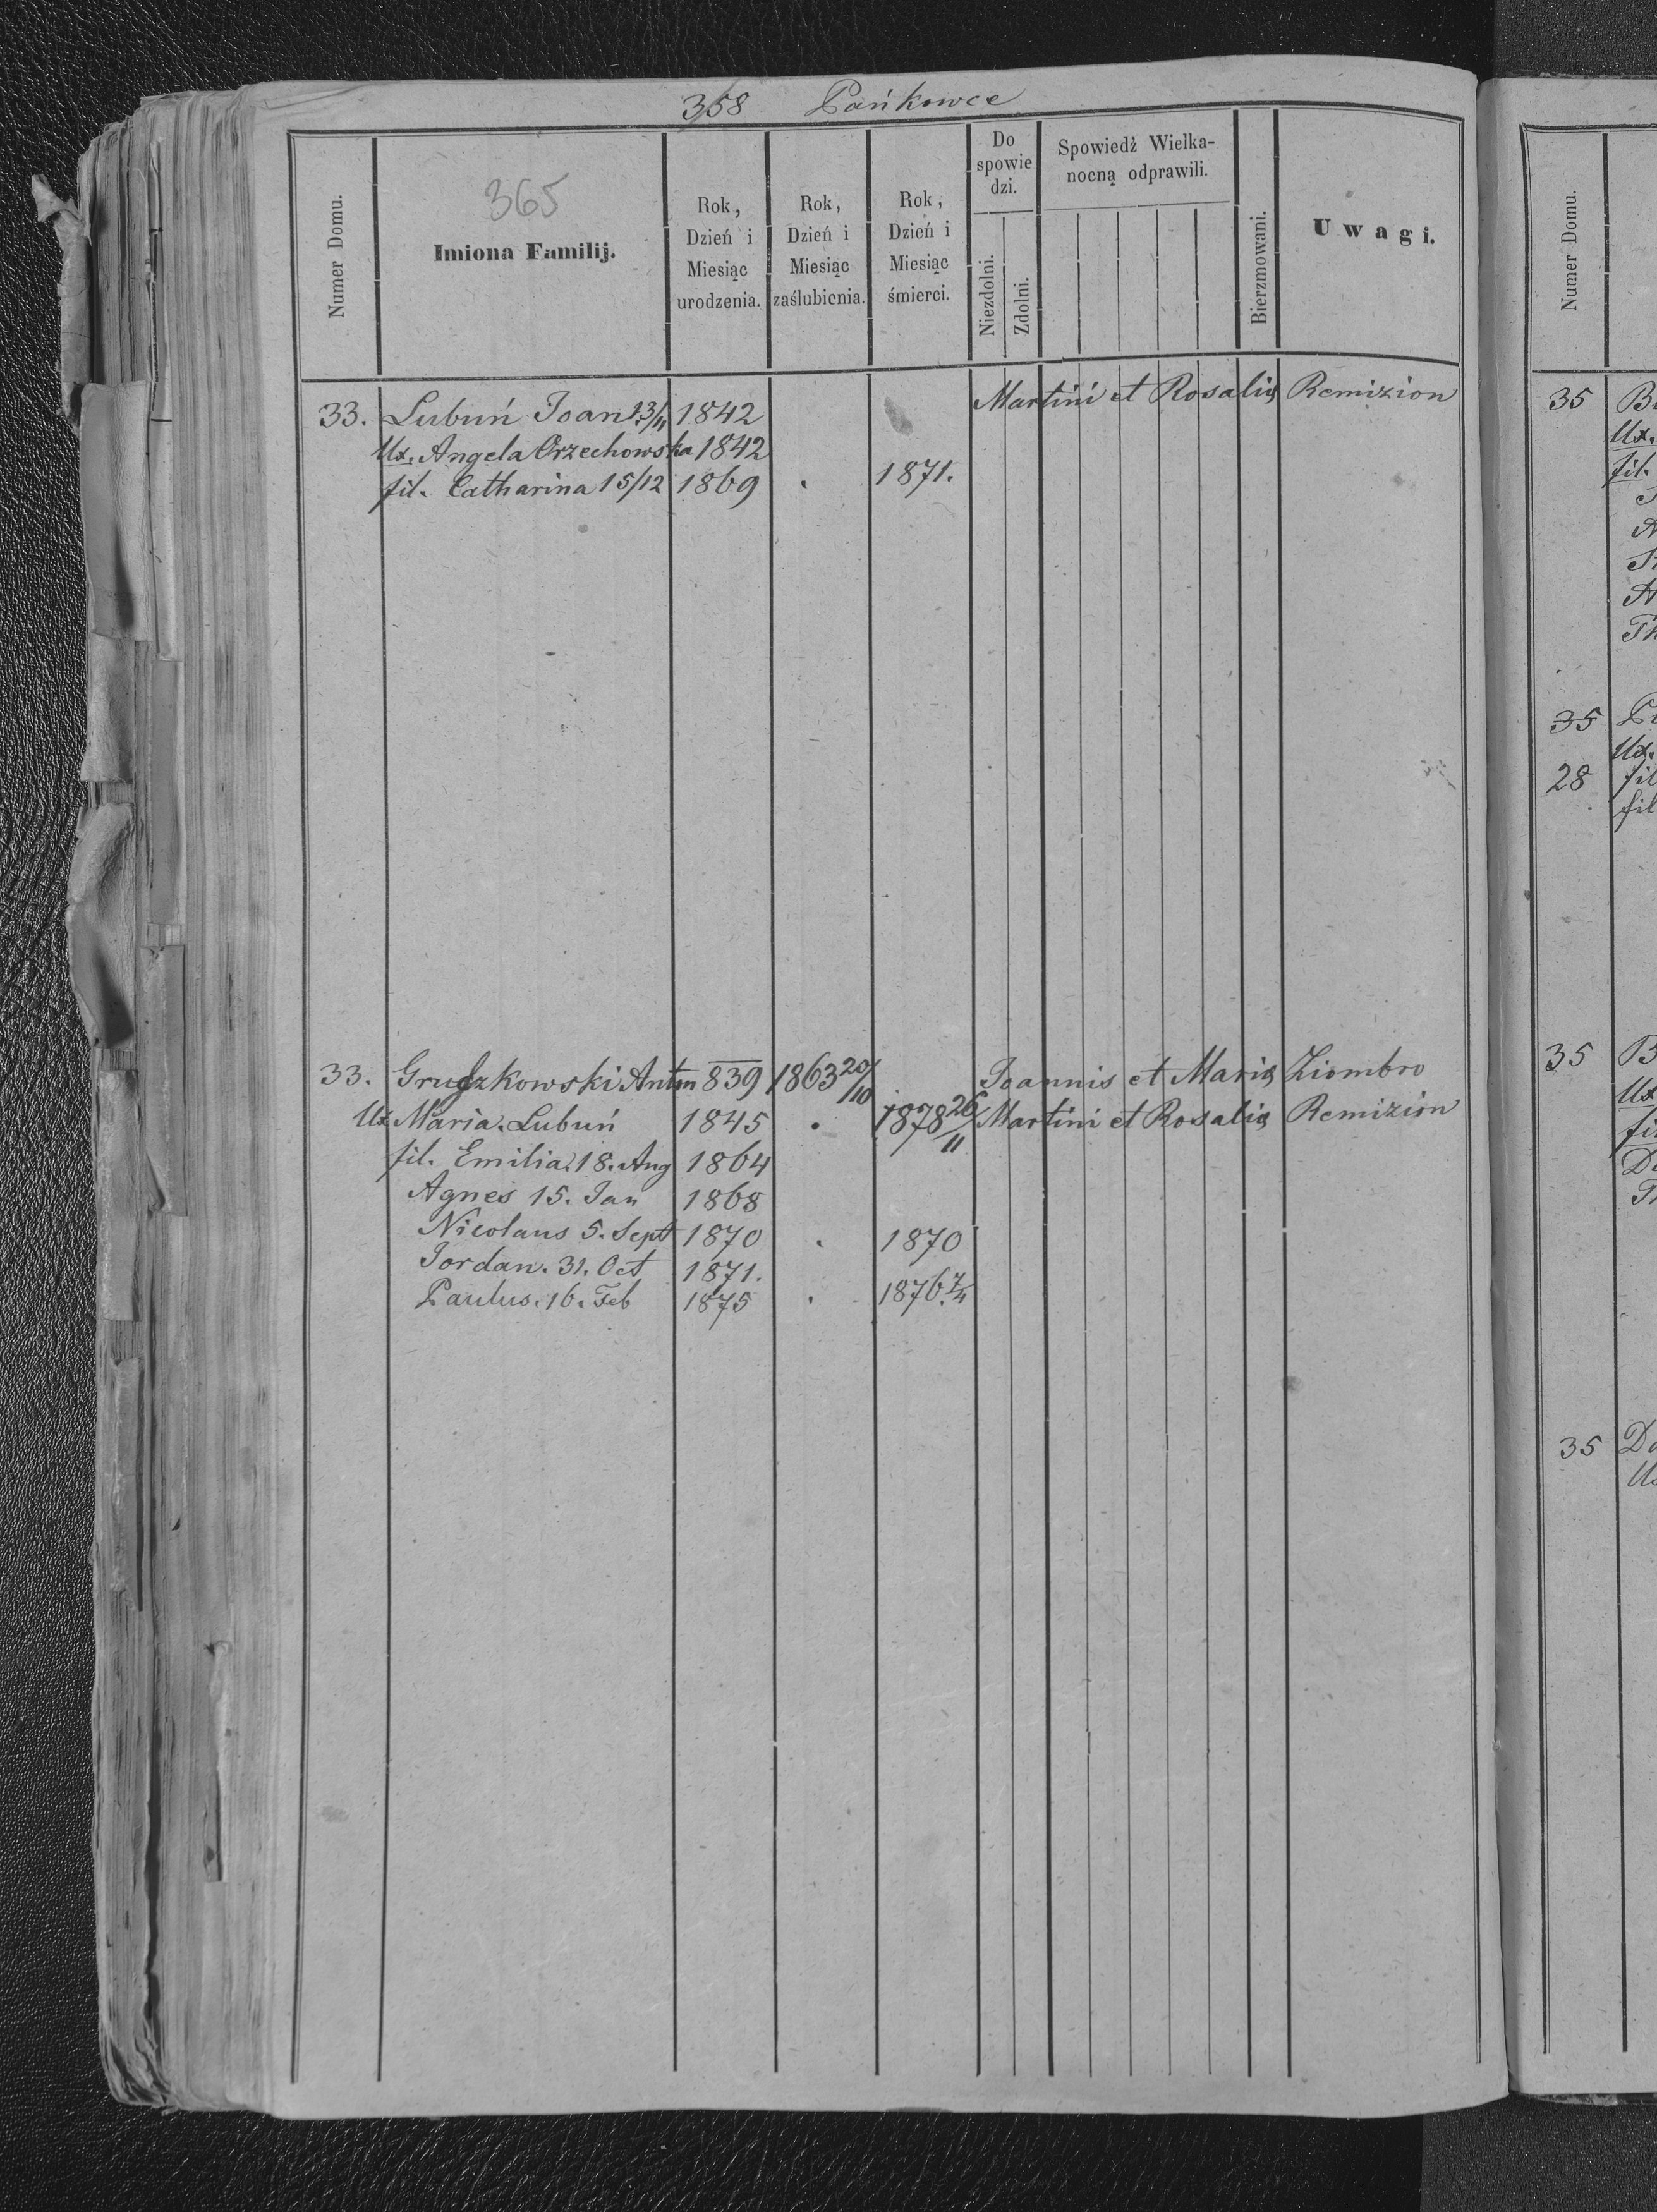 358 Pańkowce
365
Numer Domu.
Imiona Familij.
Rok, Dzień i Miesiąc urodzenia.
Rok, Dzień i Miesiąc zaślubienia.
Rok, Dzień i Miesiąc śmierci.
Do spowie dzi.
Niezdolni.
Zdolni.
Spowiedź Wielka-
nocną odprawili.
Bierzmowani.
Uwagi.
33. Lubuń Joan 23/11 1842 Martini et Rosalię Remizion
Ux. Angela Orzechowska 1842
fil. Catharina 15/12 1869 . 1871.
33. Gruszkowski Anton 839 1863 20/10 Joannis et Marię Ziombro
Ux Maria Lubuń 1845 . 1878 26/11 Martini et Rosalię Remizion
fil. Emilia 18. Aug 1864
Agnes 15. Jan 1868
Nicolaus 5. Sept 1870 . 1870
Jordan. 31. Oct 1871.
Paulus. 16. Feb 1875 . 1876. 7/4
Numer Domu.
35
Ux.
fil.
35
Ux.
28 fil
fil
35 B
Ux
fil
35 Do